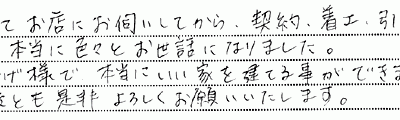 てお店にお伺いしてから、契約、着工、引
本当に色々とお世話になりました。
げ様で 本当にいい家を建てる事ができま
とも是非よろしくお願いいたします。